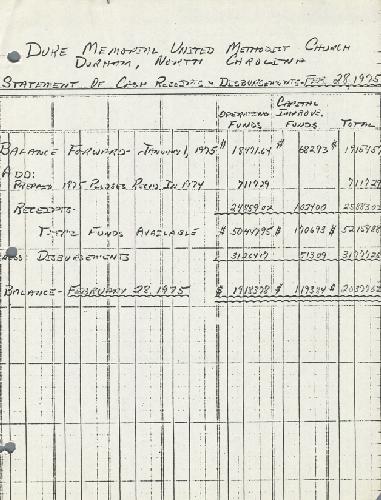 DUKE MEMORIAL UNITED METHODIST CHURCH
DURHAM, NORTH CAROLINA
STATEMENT OF CASH RECEIPTS & DISBURSEMENTS - FEB. 28, 1975
OPERATING FUNDS CAPITAL IMPROVE. FUNDS TOTAL
BALANCE FORWARD - JANUARY 1, 1975 $ 18471.64 $ 682.93 $ 19154.57
ADD:
PREPAID 1975 PLEDGES RECD. IN 1974 7117.29 7117.29
RECEIPTS- 24859.02 1024.00 25883.02
TOTAL FUNDS AVAILABLE $ 50447.95 $ 1706.93 $ 52154.88
LESS: DISBURSEMENTS 31264.17 513.09 31777.26
BALANCE - FEBRUARY 28, 1975 $ 19183.78 $ 1193.84 $ 20377.62